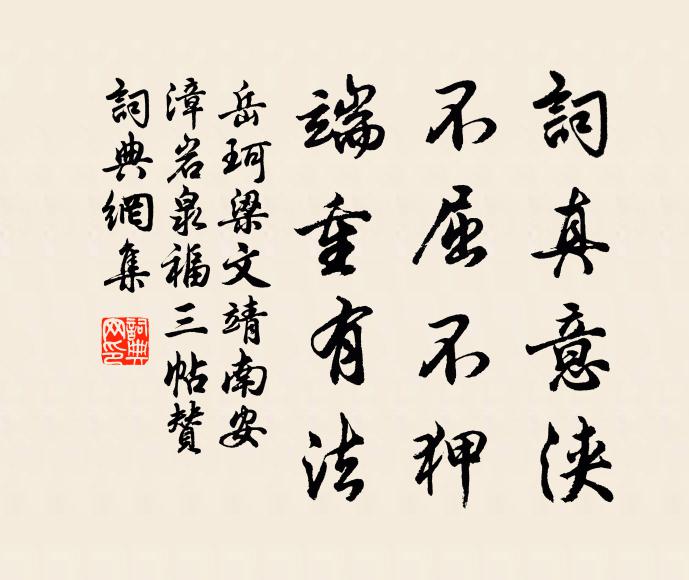 詞真意浹
不屈不狎
端重有法
岳珂梁文靖南安
漳岩泉福三帖贊
詞典網集
詞典网印